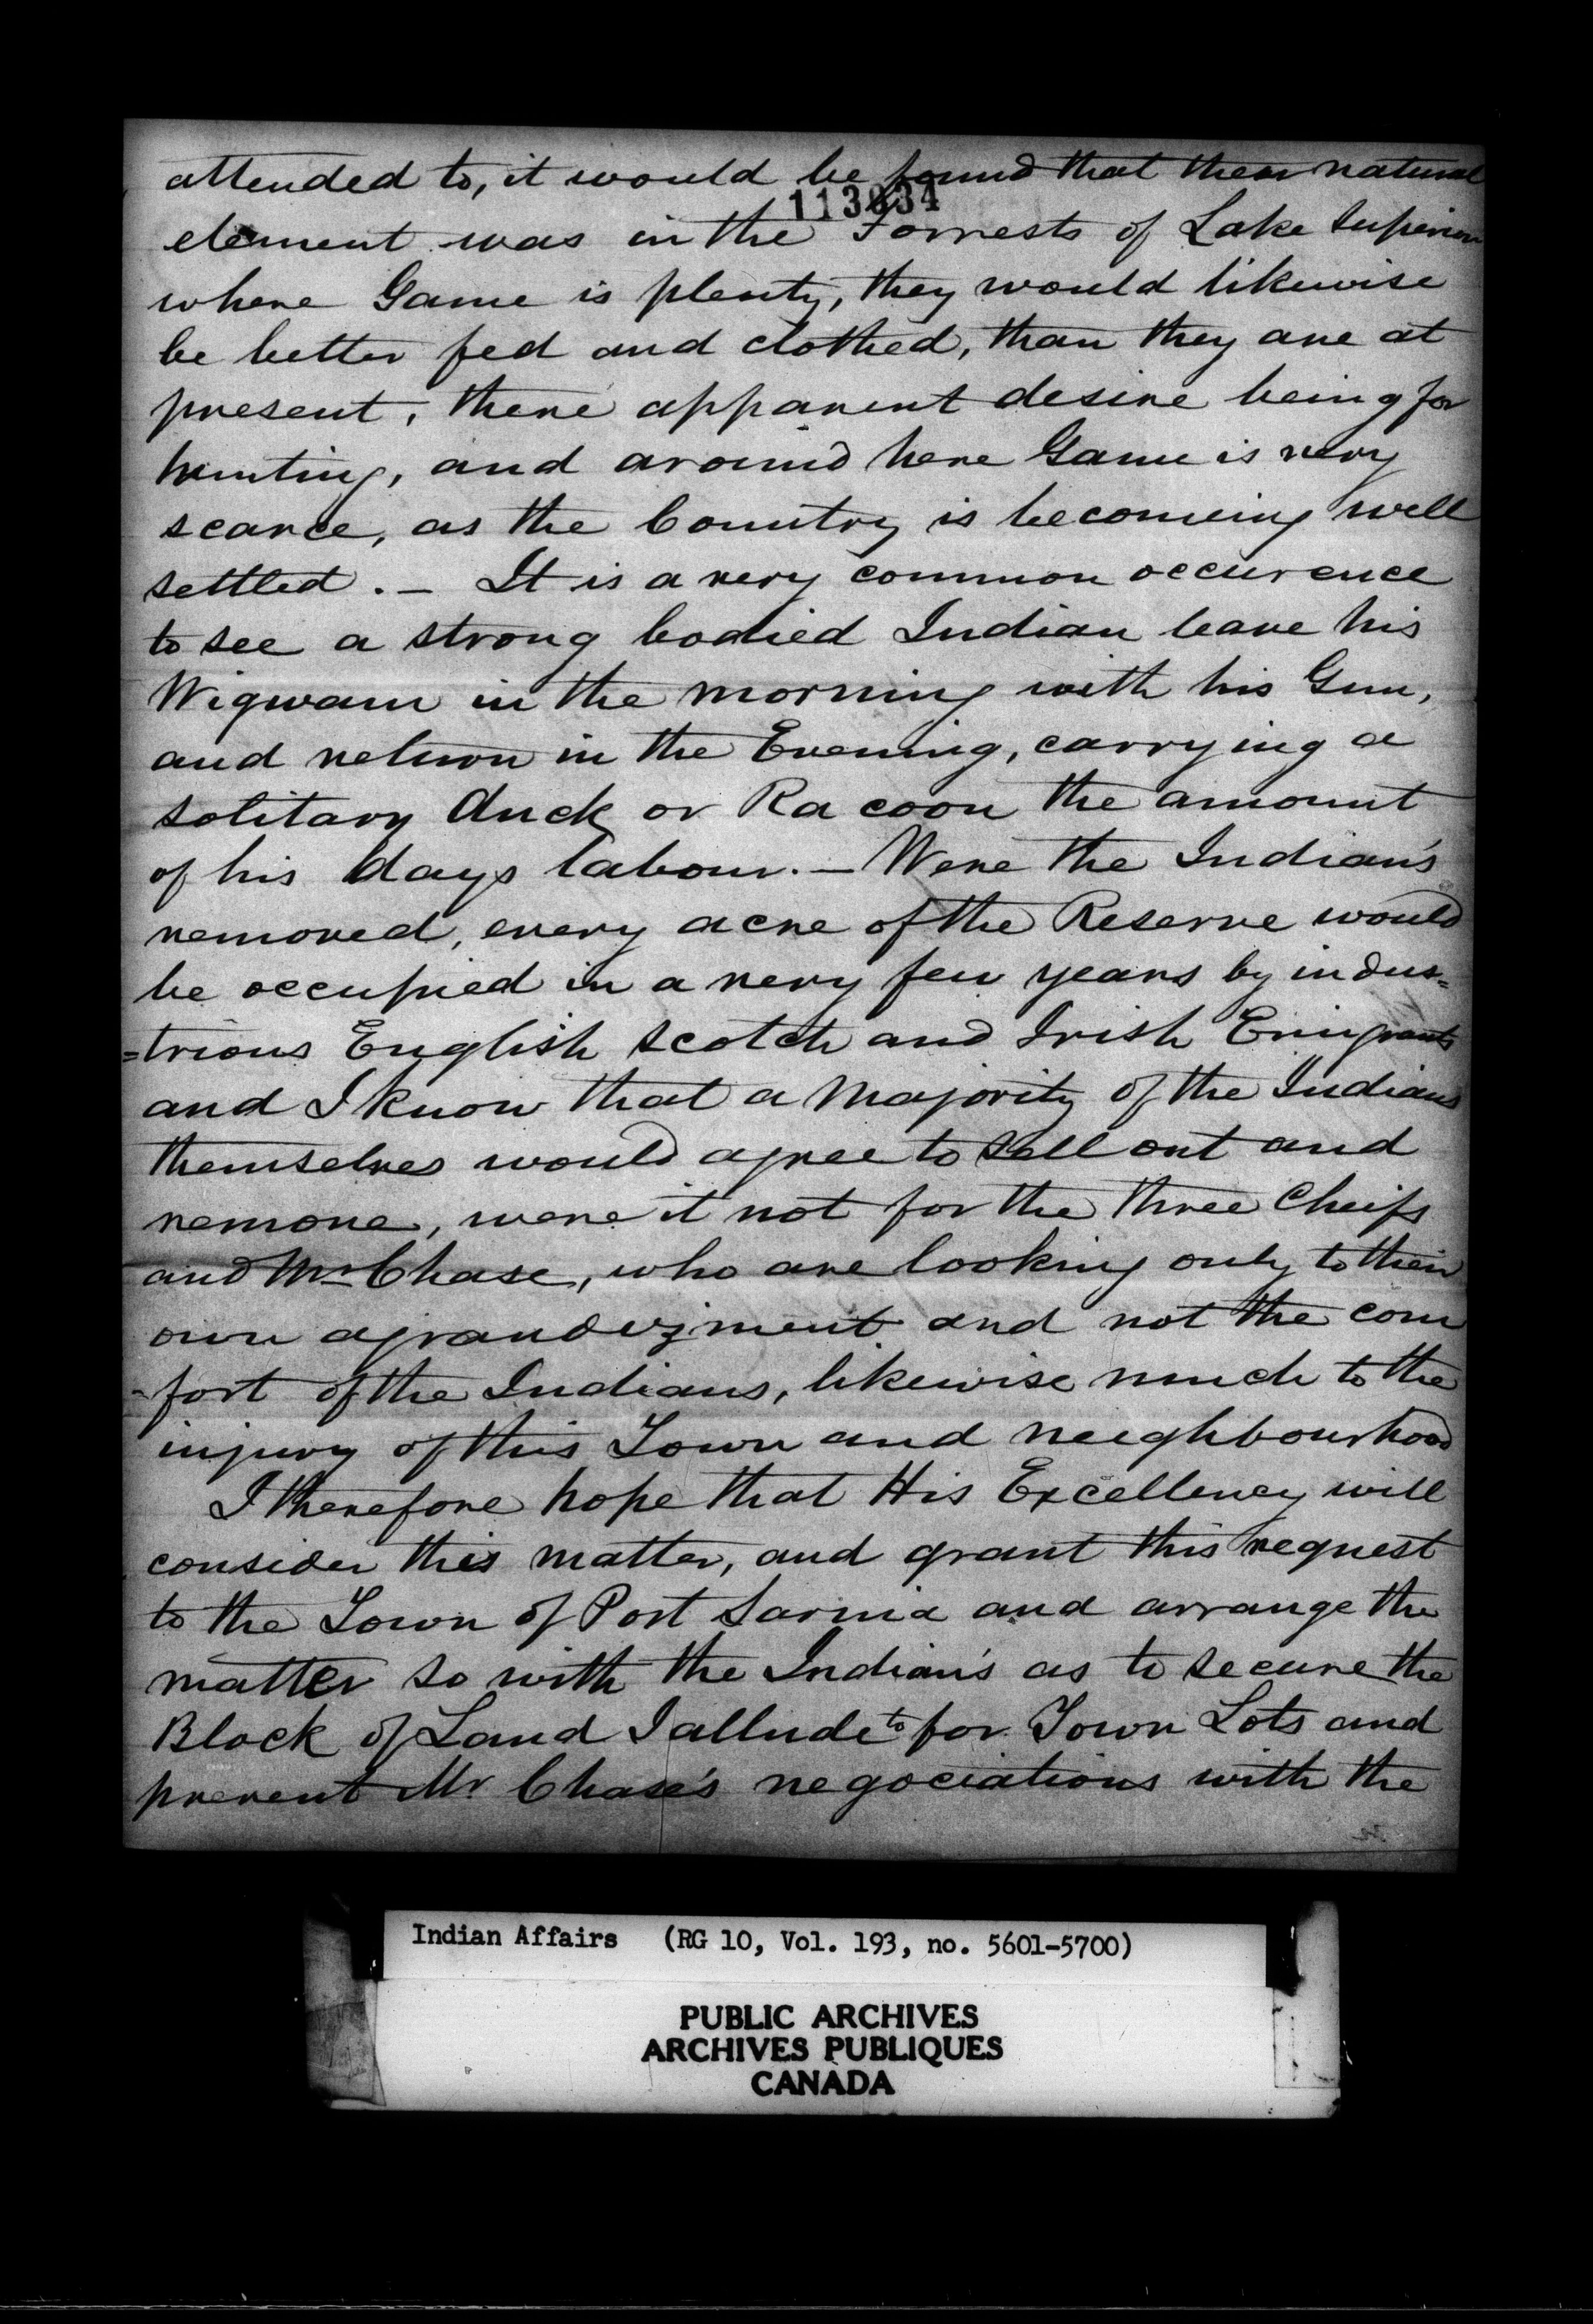 attended to, it would be found that their natural
113834
element was in the Forrests of Lake Superior
where Game is plenty, they would likewise
be better fed and clothed, than they are at
present, there apparent desire being for
hunting, and around here Game is very
scarce, as the Country is becomeing well
settled. — It is a very common occurence
to see a strong bodied Indian leave his
Wigwam in the morning with his Gun,
and return in the Evening, carrying a
solitary duck or Racoon the amount
of his days labour. — Were the Indian's
removed, every acre of the Reserve would
be occupied in a very few years by indus=
=trious English Scotch and Irish Emigrants
and I know that a Majority of the Indians
themselves would agree to sell out and
remove, were it not for the three Cheifs
and Mr Chase, who are looking only to their
own agrandizment and not the com
-fort of the Indians, likewise much to the
injury of this Town and neighbourhood
I therefore hope that His Excellency will
consider this matter, and grant this request
to the Town of Port Sarnia and arrange the
matter so with the Indian's as to secure the
Block of Land I allude to for Town Lots and
prevent Mr Chase's negociations with the
Indian Affairs (RG 10, Vol. 193, no. 5601-5700)
PUBLIC ARCHIVES
ARCHIVES PUBLIQUES
CANADA